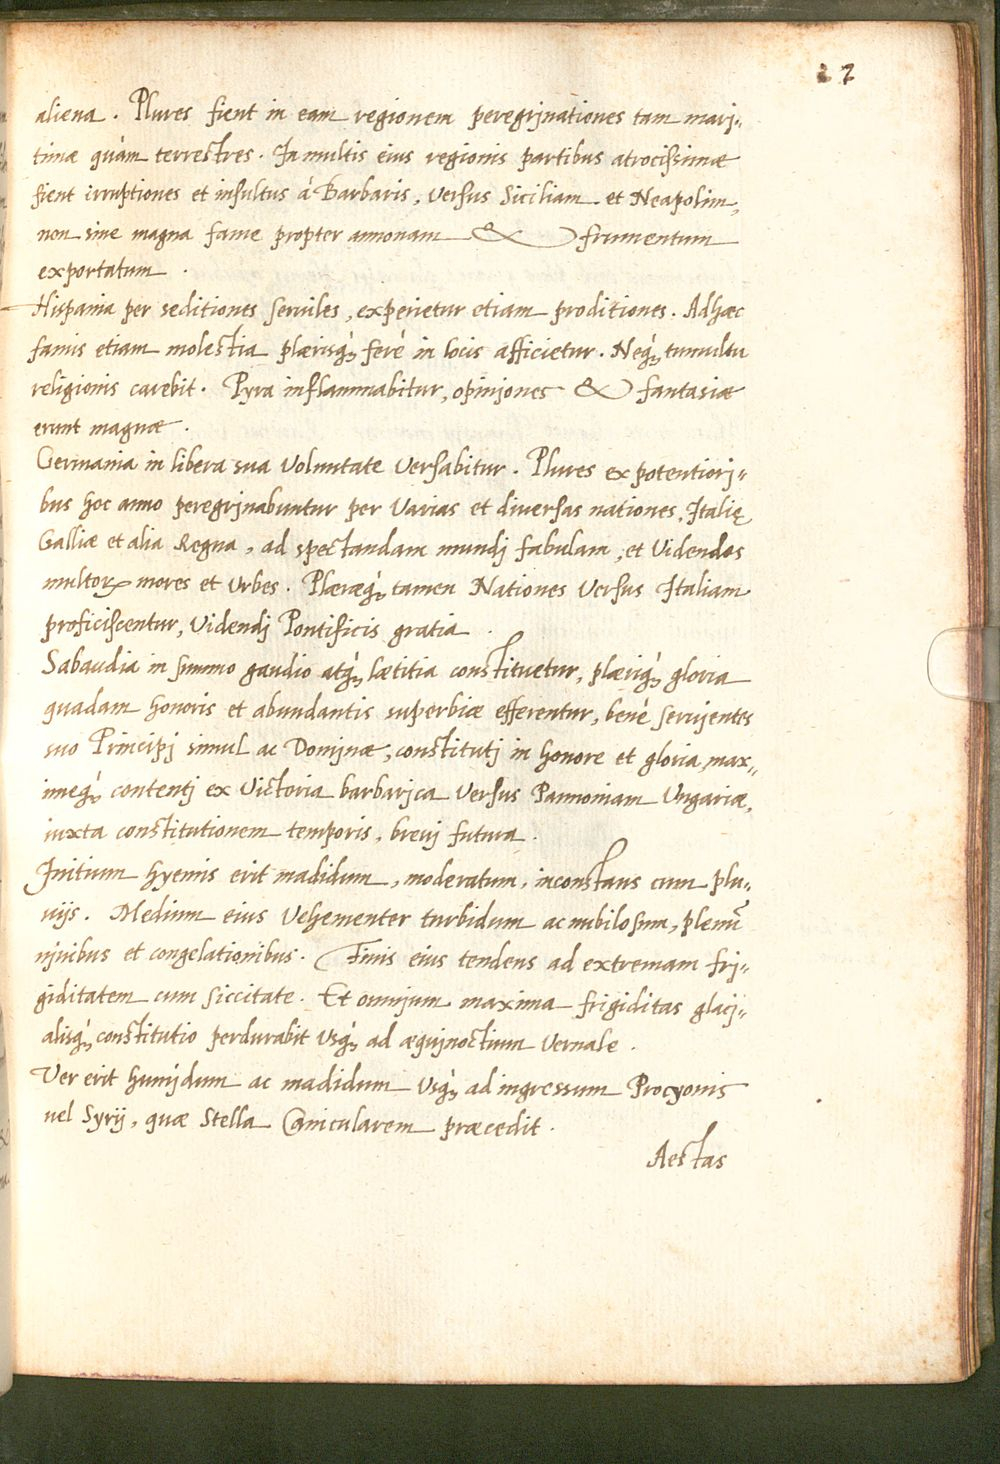 27
aliena. Plures fient in eam regionem peregrinationes tam mari„
timæ quàm terrestres. In multis eius regionis partibus atrocissimæ
fient irruptiones et insultus á Barbaris, versus Siciliam et Neapolim,
non sine magna fame propter annonam & frumentum
exportatum.
Hispania per seditiones serviles, experietur etiam proditiones. Adhæc
famis etiam molestia plærisq̃ ferè in locis afficietur. Neq̃ tumultu
religionis carebit. Pyra inflammabitur, opiniones & fantasiæ
erunt magnæ.
Germania in libera sua voluntate versabitur. Plures ex potentiorj„
bus hoc anno peregrjnabuntur per varias et diversas nationes, Italię
Galliæ et alia Regna, ad spectandam mundj fabulam, et videndos
multorꝝ mores et vrbes. Plæræq̃ tamen Nationes versus Italiam
proficiscentur, videndj Pontificis gratia.
Sabaudia in summo gaudio atq̃ lætitia constituetur, plæriq̃ gloria
quadam honoris et abundantis superbiæ efferentur, benè servjentes
suo Principj simul ac Dominæ, constitutj in honore et gloria, max„
imeq̃ contentj ex victoria barbarjca versus Pannoniam Vngariæ,
iuxta constitutionem temporis, brevj futura.
Initium hyemis erit madidum, moderatum, inconstans cum plu„
uijs. Medium eius vehementer turbidum ac nubilosum, plenũ
njvibus et congelationibus. Finis eius tendens ad extremam frj„
giditatem cum siccitate. Et omnjum maxima frigiditas glacj„
alisq̃ constitutio perdurabit vsq̃ ad æqujnoctium vernale.
Ver erit humjdum ac madidum vsq̃ ad ingressum Procyonis
uel Syrij, quæ Stella Canicularem præcedit.
Aestas